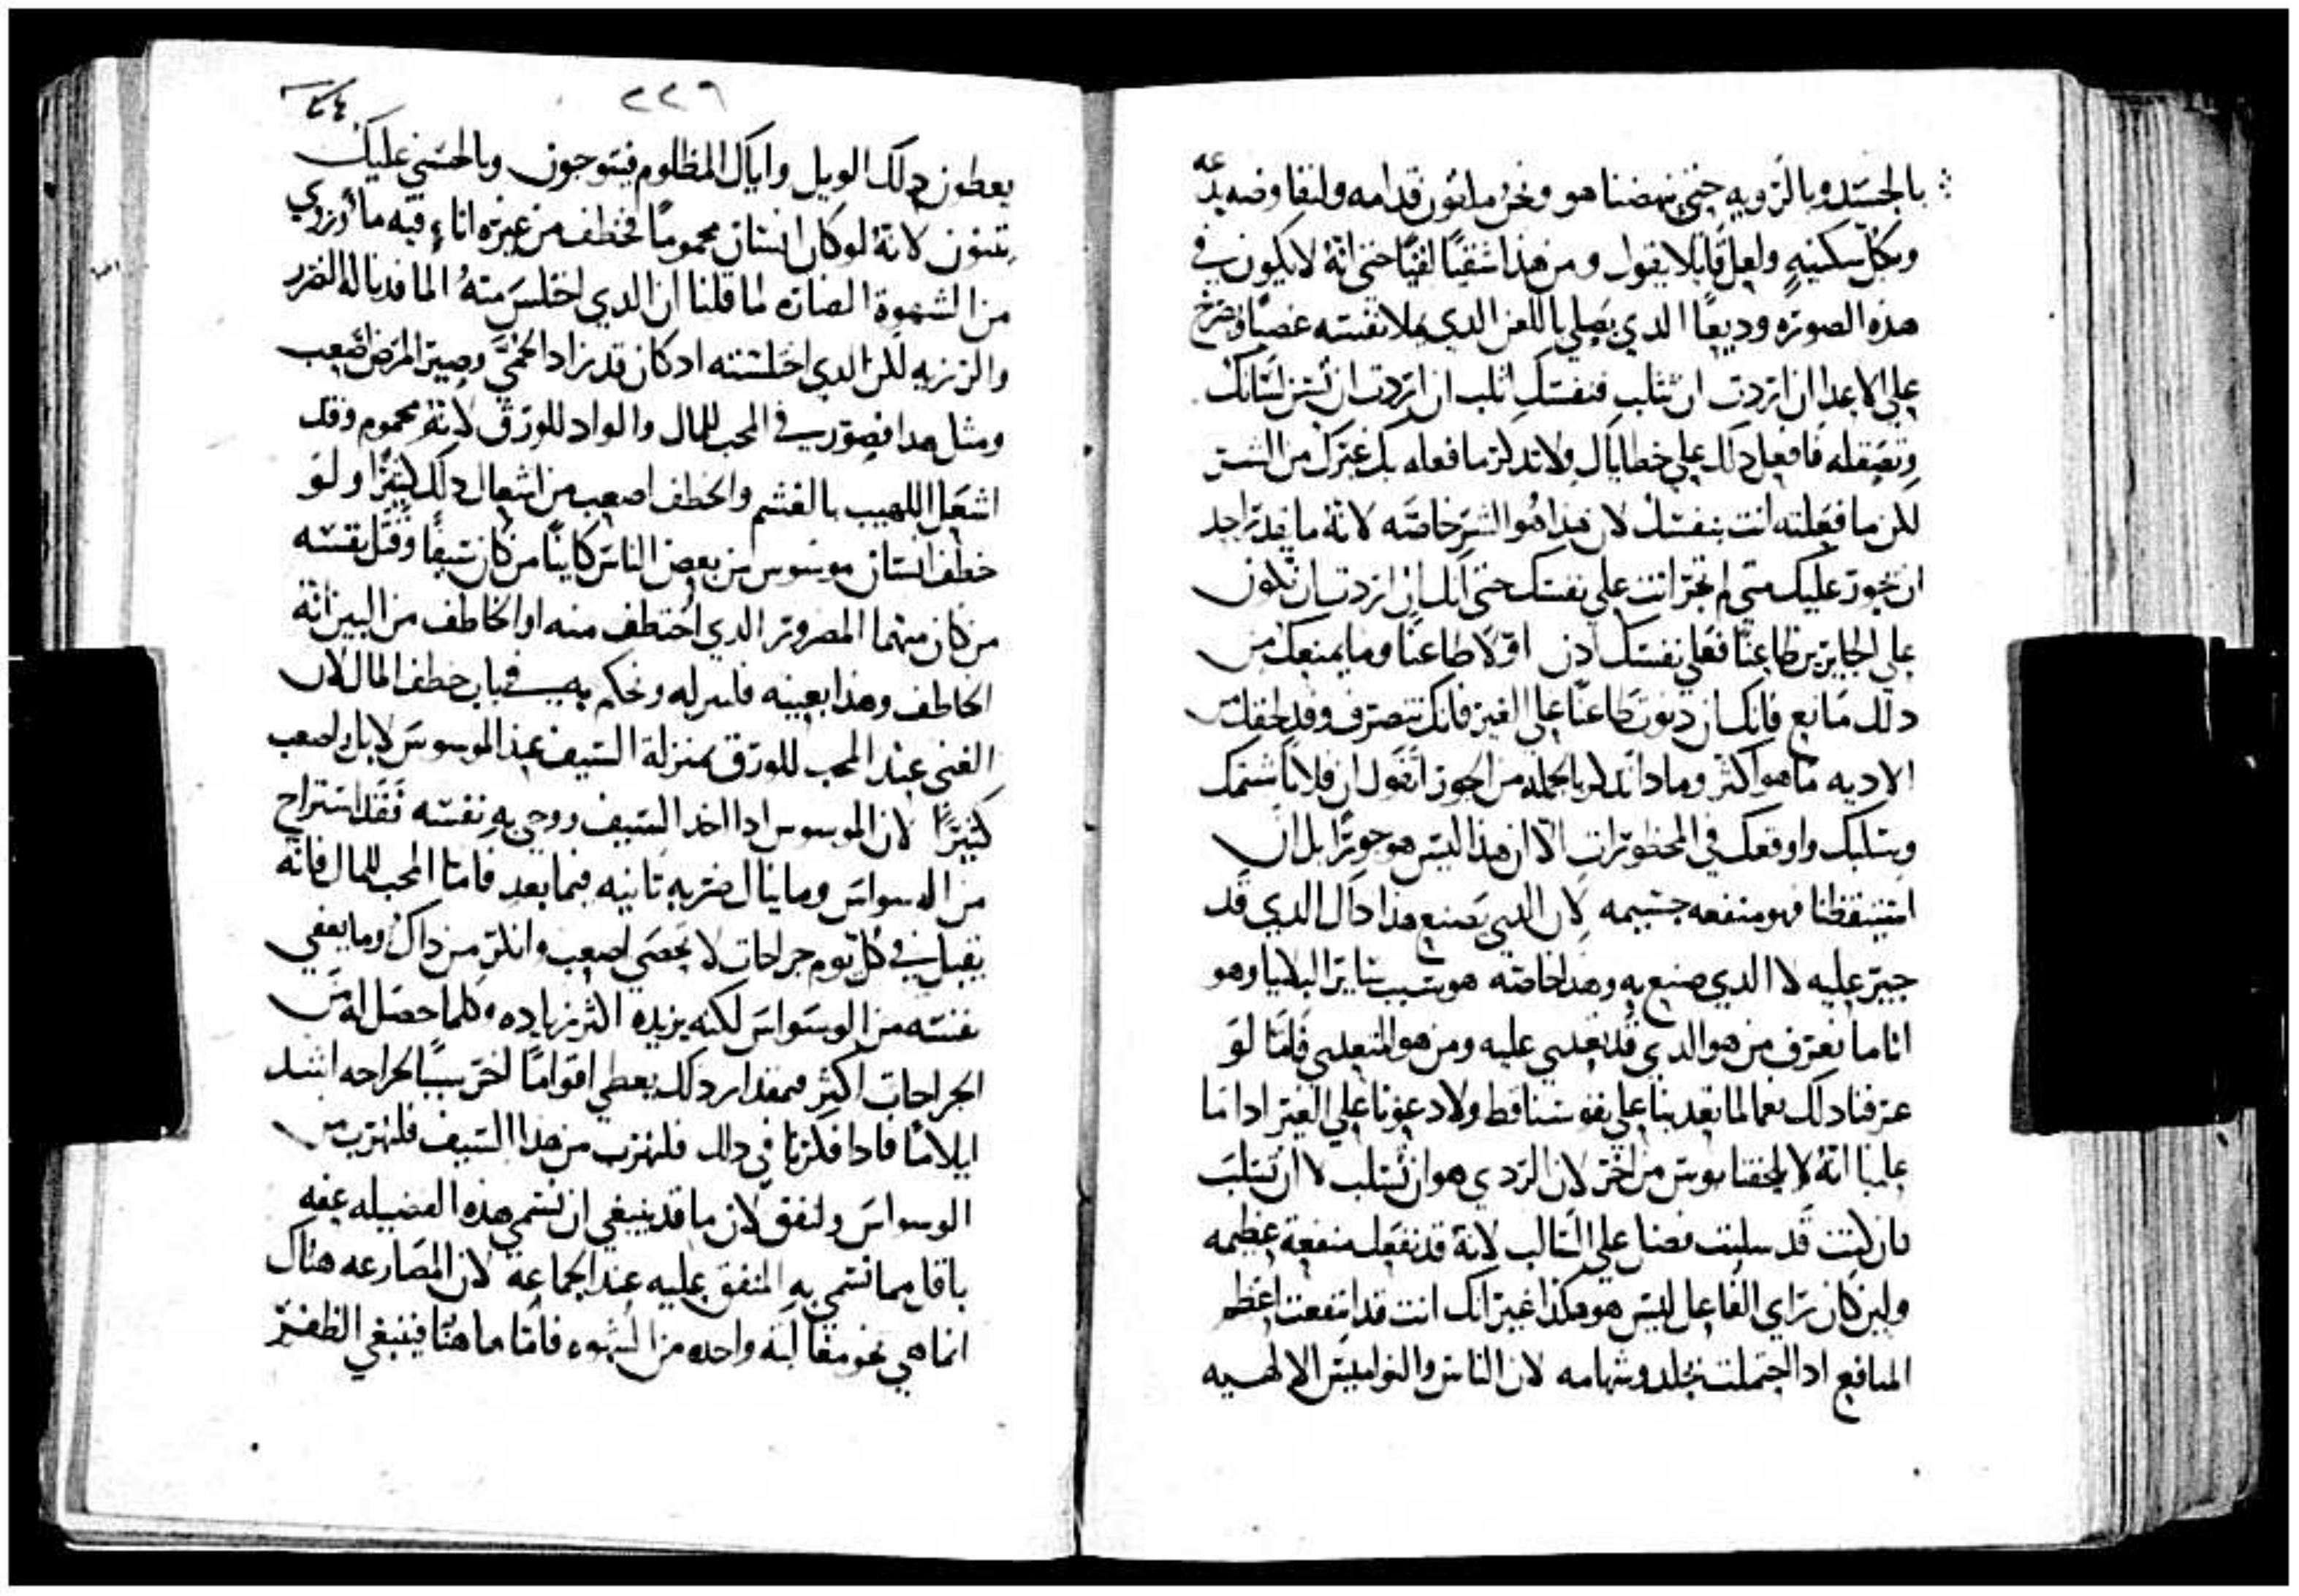 بالجسد وبالرويه حتى ينهضنا هو ونحن ملقون قدامه ولنفاوضه بدعه
وبكل سكينه ولعل قايلا يقول ومن هذا شقيا لقيا حتى انه لا يكون في
هذه الصوره وديعا الدي يصلي باللعن الدي ملا نفسه غضبا وصرخ
على الاعدا ان اردت ان تثلب فنفسك اثلب ان اردت ان تسن لسانك
وتصقله فافعل دلك على خطاياك ولا تدكر ما فعله بك غيرك من الشر
لكن ما فعلته انت بنفسك لان هذا هو الشر خاصه لانه ما يقدر احد
ان يجور عليك متى لم تجر انت على نفسك حتى انك ان اردت ان تكون
على الجايرين طاعنا فعلى نفسك ادن اولا طاعنا وما يمنعك من
دلك مانع فانك ان دنوت طاعنا على الغير فانك تنصرف وقد لحقك من
الاديه ما هو اكثر وماذا تدكر بالجمله من الجور اتقول ان فلانا شتمك
وسلبك واوقعك في المحظورات الا ان هذا ليس هو جورا بل ان
استيقظنا فهو منفعه جسيمه لان الدي يصنع هذا داك الدي قد
جير عليه لا الدي صنع به وهدا خاصه هو سبب ساير البلايا وهو
اننا ما نعرف من هو الدي قد تعدي عليه ومن هو المتعدي فاما لو
عرفنا دلك نعما لما تعدينا على نفوسنا قط ولا دعونا على الغير ادا ما
علمنا انه لا يلحقنا بوس من اخر لان الردي هو ان تسلب لا ان تسلب
فان كنت قد سلبت فضا على السالب لانه قد نفعك منفعة عظيمه
ولين كان راي الفاعل ليس هو هكذا غير انك انت قد انتفعت اعظم
المنافع ادا احتملت بجلد وشهامه لان الناس والنواميس الالهيه
٢٢٦
يعطون دلك الويل واياك المظلوم فيتوجون وبالحسني عليك
يثنون لانه لو كان انسان محموما فخطف من غيره اناء فيه ما وروي
من الشهوة الضاره لما قلنا ان الدي اختلس منه الما قد ناله الضرر
والرزيه لكن الدي اختلسته اد كان قد زاد الحمى وصير المرض اصعب
ومثل هدا فصور في المحب للمال والواد للورق لانه محموم وقد
اشعل اللهيب بالغشم والخطف اصعب من اشعال دلك كثيرا ولو
خطف انسان موسوس من بعض الناس كاينا من كان سيفا وقتل نفسه
من كان منهما المضرور الدي اختطف منه او الخاطف من البين انه
الخاطف وهذا بعينه فلنرله ونحكم به في باب خطف المال لان
الغني عند المحب للورق بمنزلة السيف عند الموسوس لا بل واصعب
كثيرا لان الموسوس ادا اخد السيف ووجي به نفسه فقد استراح
من الوسواس وما ينال ضربه ثانيه فيما بعد فاما المحب للمال فانه
يقبل في كل يوم جراحات لا تحصى اصعب وانكر من داك وما يعفي
نفسه من الوسواس لكنه يزيده اكثر زياده وكلما حصل له من
الجراحات اكثر بمقدار دلك يعطي اقواما اخر سببا لجراحه اشد
ايلاما فادا فكرنا في دلك فلنهرب من هدا السيف فلنهرب من
الوسواس ولنفق لان ما قد ينبغي ان تسمى هذه الفضيله عفه
باقل مما تسمى به المتفق عليه عند الجماعة لان المصارعه هناك
انما هي نحو مغالبه واحده من الشهوه فاما ها هنا فينبغي الظفر